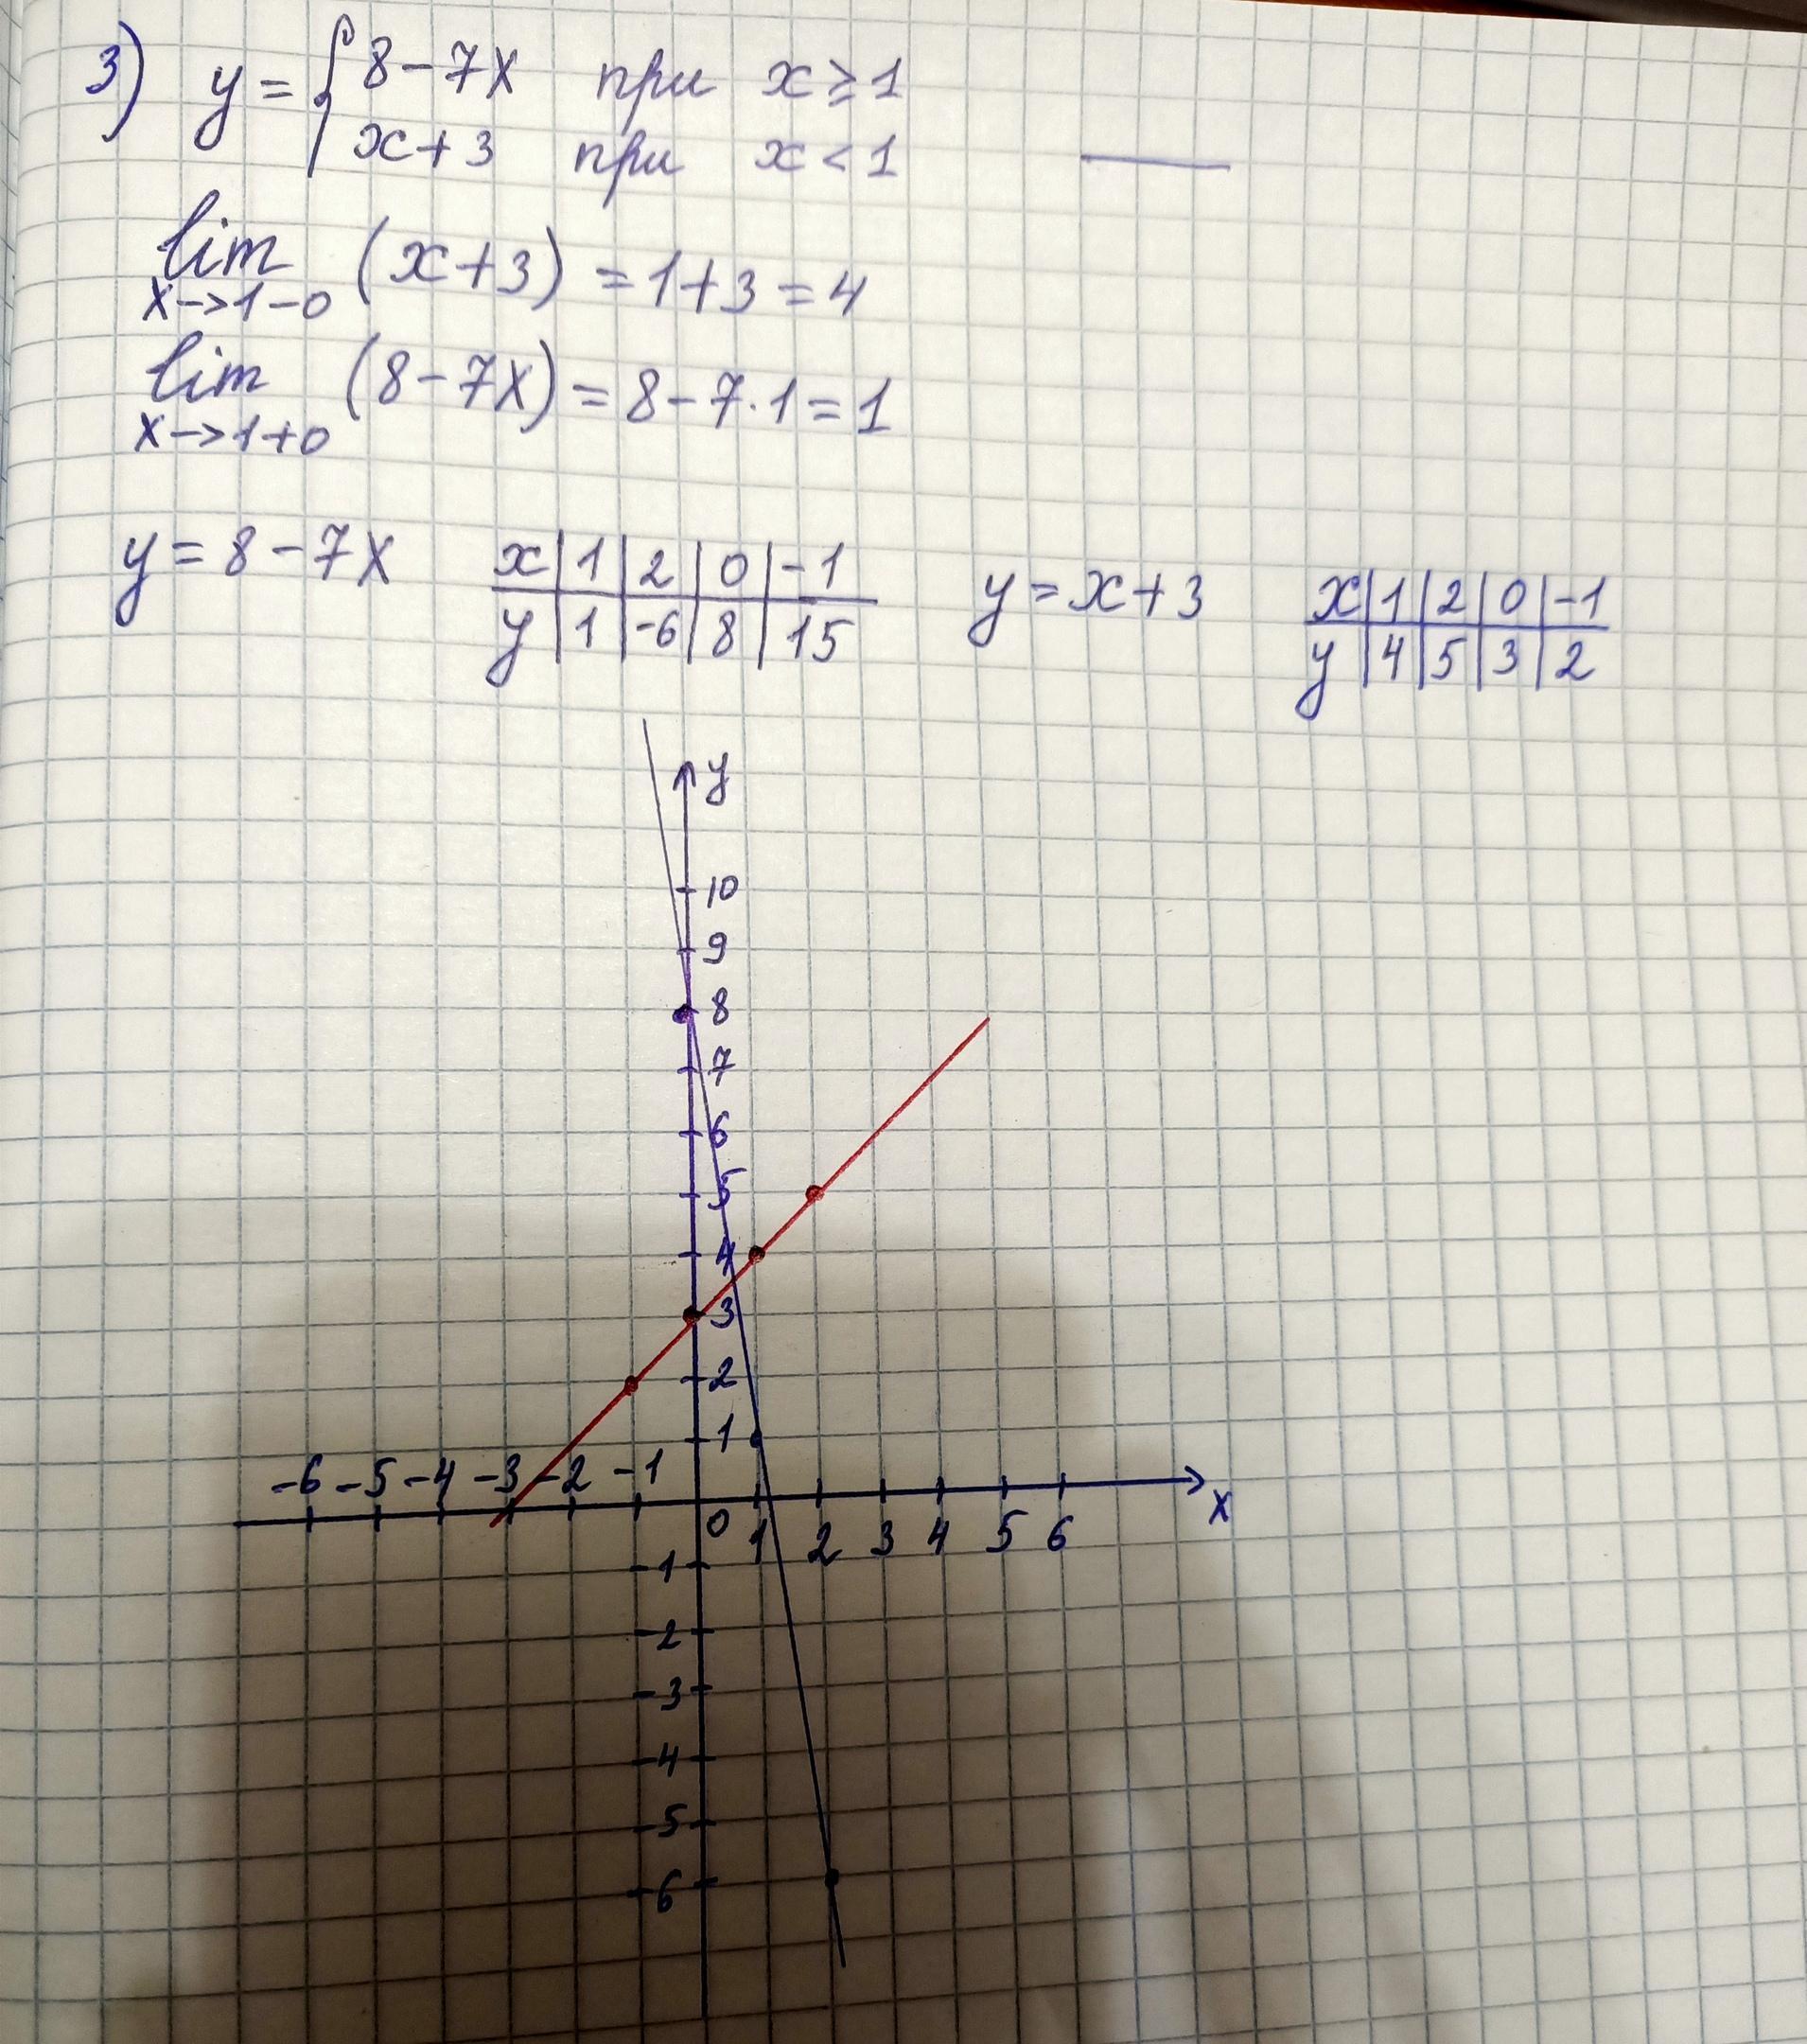 3) y = { 8 - 7x при x ≥ 1
x + 3 при x < 1
lim (x + 3) = 1 + 3 = 4
x → 1 - 0
lim (8 - 7x) = 8 - 7 · 1 = 1
x → 1 + 0
y = 8 - 7x
x | 1 | 2 | 0 | -1
y | 1 | -6 | 8 | 15
y = x + 3
x | 1 | 2 | 0 | -1
y | 4 | 5 | 3 | 2
y
10
9
8
7
6
5
4
3
2
1
-6 -5 -4 -3 -2 -1
0 1 2 3 4 5 6 x
-1
-2
-3
-4
-5
-6